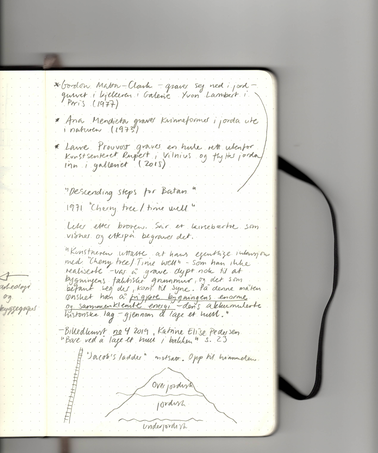 * Gordon Matta-Clark - graver seg ned i jord-
gulvet i kjelleren i Galerie Yvon Lambert i
Paris (1977)
* Ana Mendieta graver kvinneformer i jorda ute
i naturen (1973)
* Laure Prouvost graver en hule rett utenfor
kunstsenteret Rupert, i Vilnius og flytta jorda
inn i galleriet (2015)
"Descending steps for Batan"
1971 "Cherry tree / time well"
Leter etter broren. Sår et kirsebærtre som
visner og etterpå begraves det.
"Kunstneren uttalte at hans egentlige intensjon
med "Cherry tree / Time well" - som han ikke
realiserte - var å grave dypt nok til at
bygningens faktiske grunnmur, og det som
befant seg der, kom til syne. På denne måten
ønsket han å frigjøre bygningens enorme
og sammenklemte energi - dens akkumulerte
historiske lag - gjennom å lage et hull."
- Billedkunst nr 4 2019, Katrine Elise Pedersen
"Bare ved å lage et hull i bakken" s. 23
arkeologi
og
byggegroper
"Jacob's ladder" motsatt. Opp til himmelen.
Overjordisk
jordisk
underjordisk